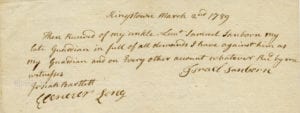 Kingstown March 2nd 1789
Then Received of my unkle Lieut Samuel Sanborn my
late Guardian in full of all demands I have against him as
my Guardian and on Every other amount whatever Recd by me
witness Israel Sanborn
Josiah Bartlett
Ebenezer Long